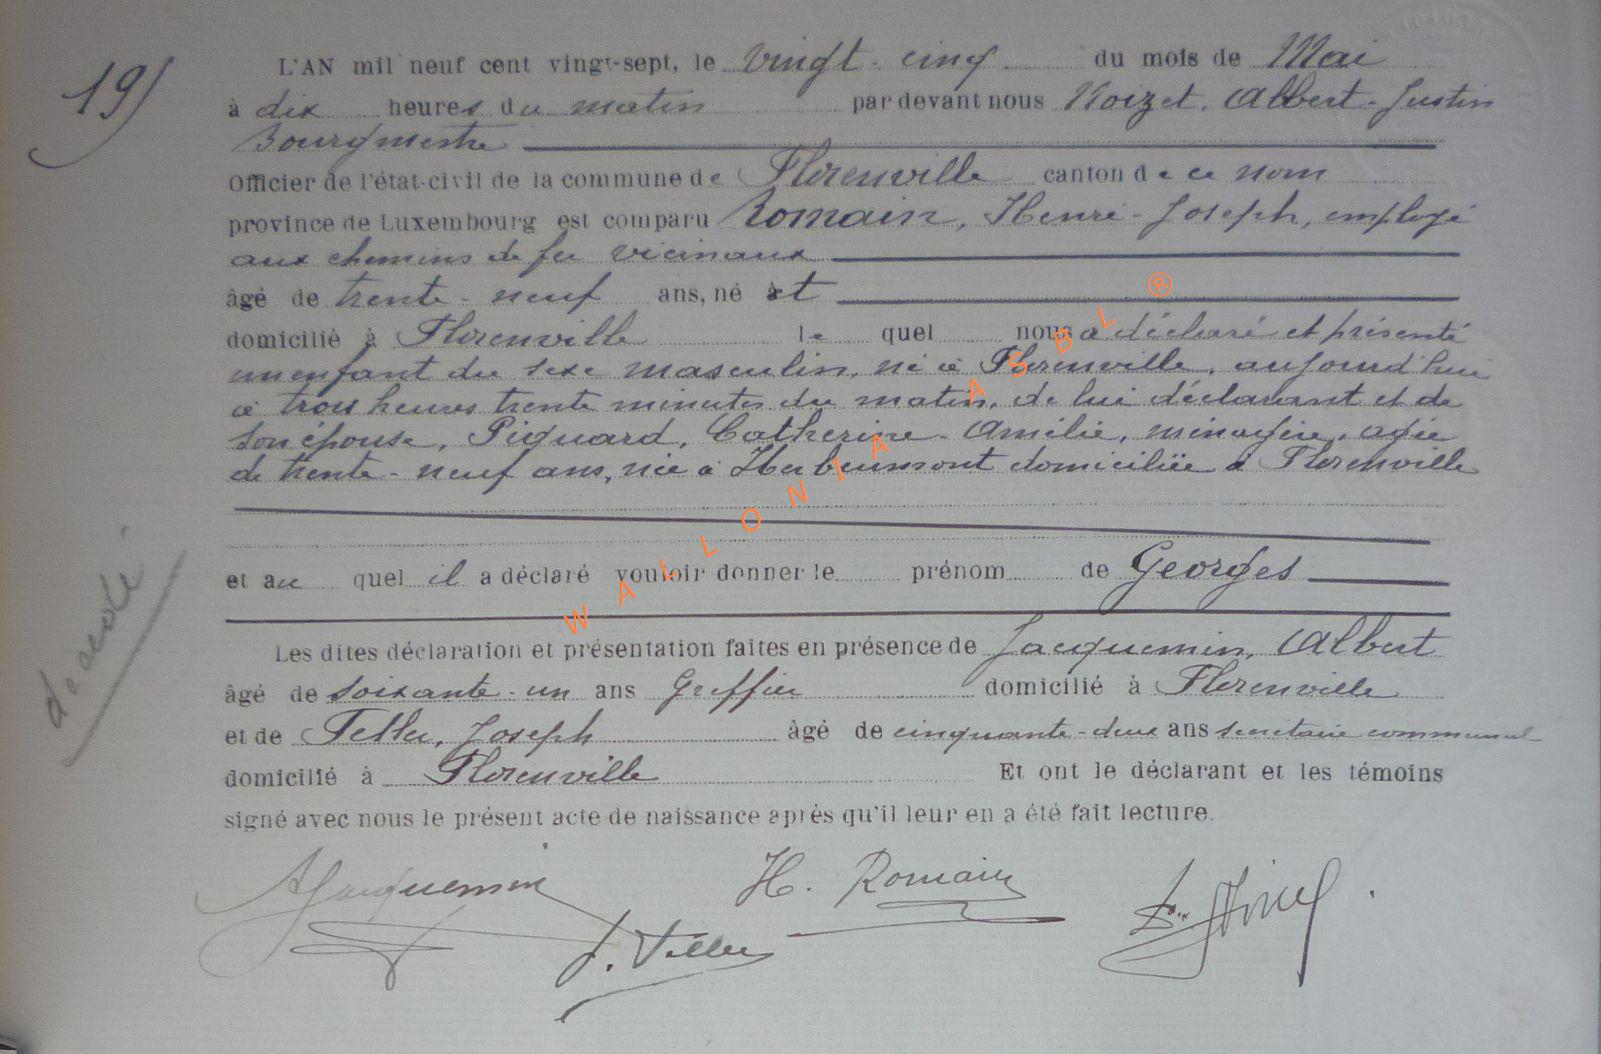 19)
L'AN mil neuf cent vingt-sept, le vingt-cinq du mois de Mai
à dix heures du matin par devant nous Noizet, Albert-Justin
Bourgmestre
Officier de l'état-civil de la commune de Florenville canton de ce nom
province de Luxembourg est comparu Romain, Henri-Joseph, employé
aux chemins de fer vicinaux
âgé de trente-neuf ans, né et
domicilié à Florenville le quel nous a déclaré et présenté
un enfant du sexe masculin, né à Florenville, aujourd'hui
à trois heures trente minutes du matin, de lui déclarant et de
son épouse, Piquard, Catherine-Amélie, ménagère, agée
de trente-neuf ans, née à Herbeumont domiciliée à Florenville
et au quel il a déclaré vouloir donner le prénom de Georges
Les dites déclaration et présentation faites en présence de Jacquemin, Albert
âgé de soixante-un ans Greffier domicilié à Florenville
et de Teller, Joseph âgé de cinquante-deux ans secrétaire communal
domicilié à Florenville Et ont le déclarant et les témoins
signé avec nous le présent acte de naissance après qu'il leur en a été fait lecture.
AJacquemin H. Romain
J. Teller
décédé
WALLONIA ASBL ®